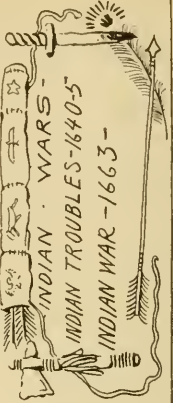 INDIAN · WARS-
INDIAN TROUBLES-1640-5
INDIAN WAR-1663-